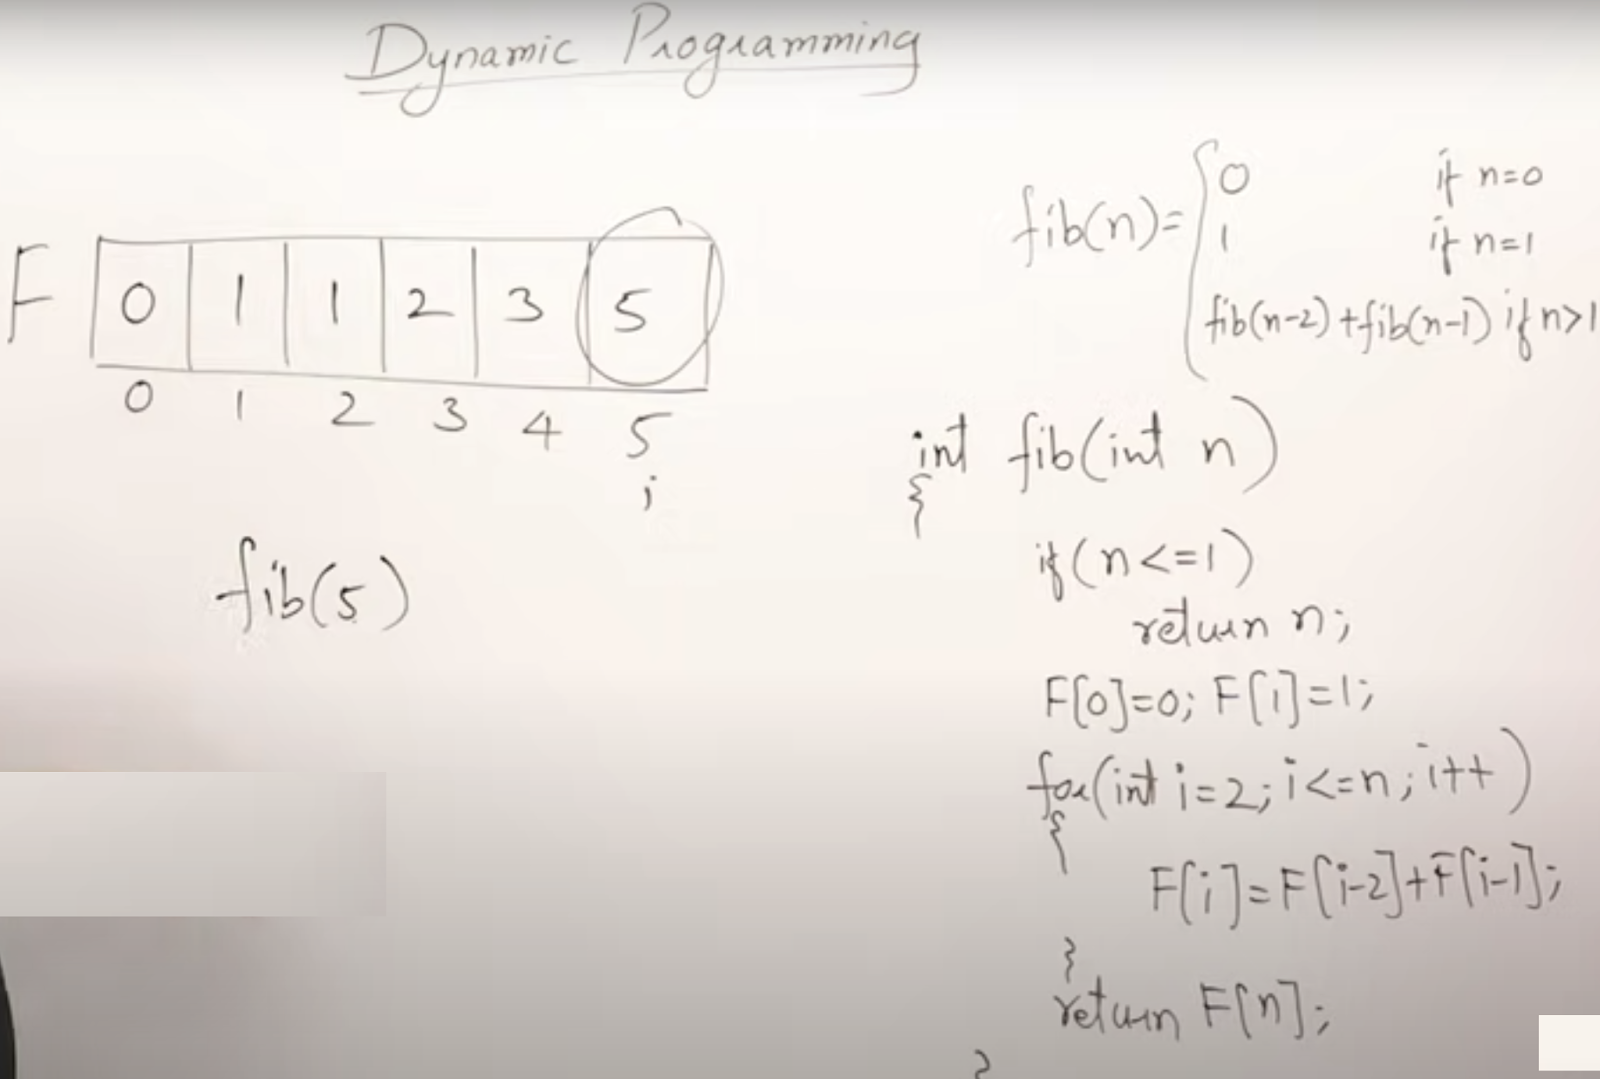 Dynamic Programming
F 0 1 1 2 3 5
0 1 2 3 4 5
i
fib(5)
fib(n)= { 0 if n=0
1 if n=1
fib(n-2)+fib(n-1) if n>1
int fib(int n)
{
if(n<=1)
return n;
F[0]=0; F[1]=1;
for(int i=2; i<=n; i++)
{
F[i]=F[i-2]+F[i-1];
}
return F[n];
}